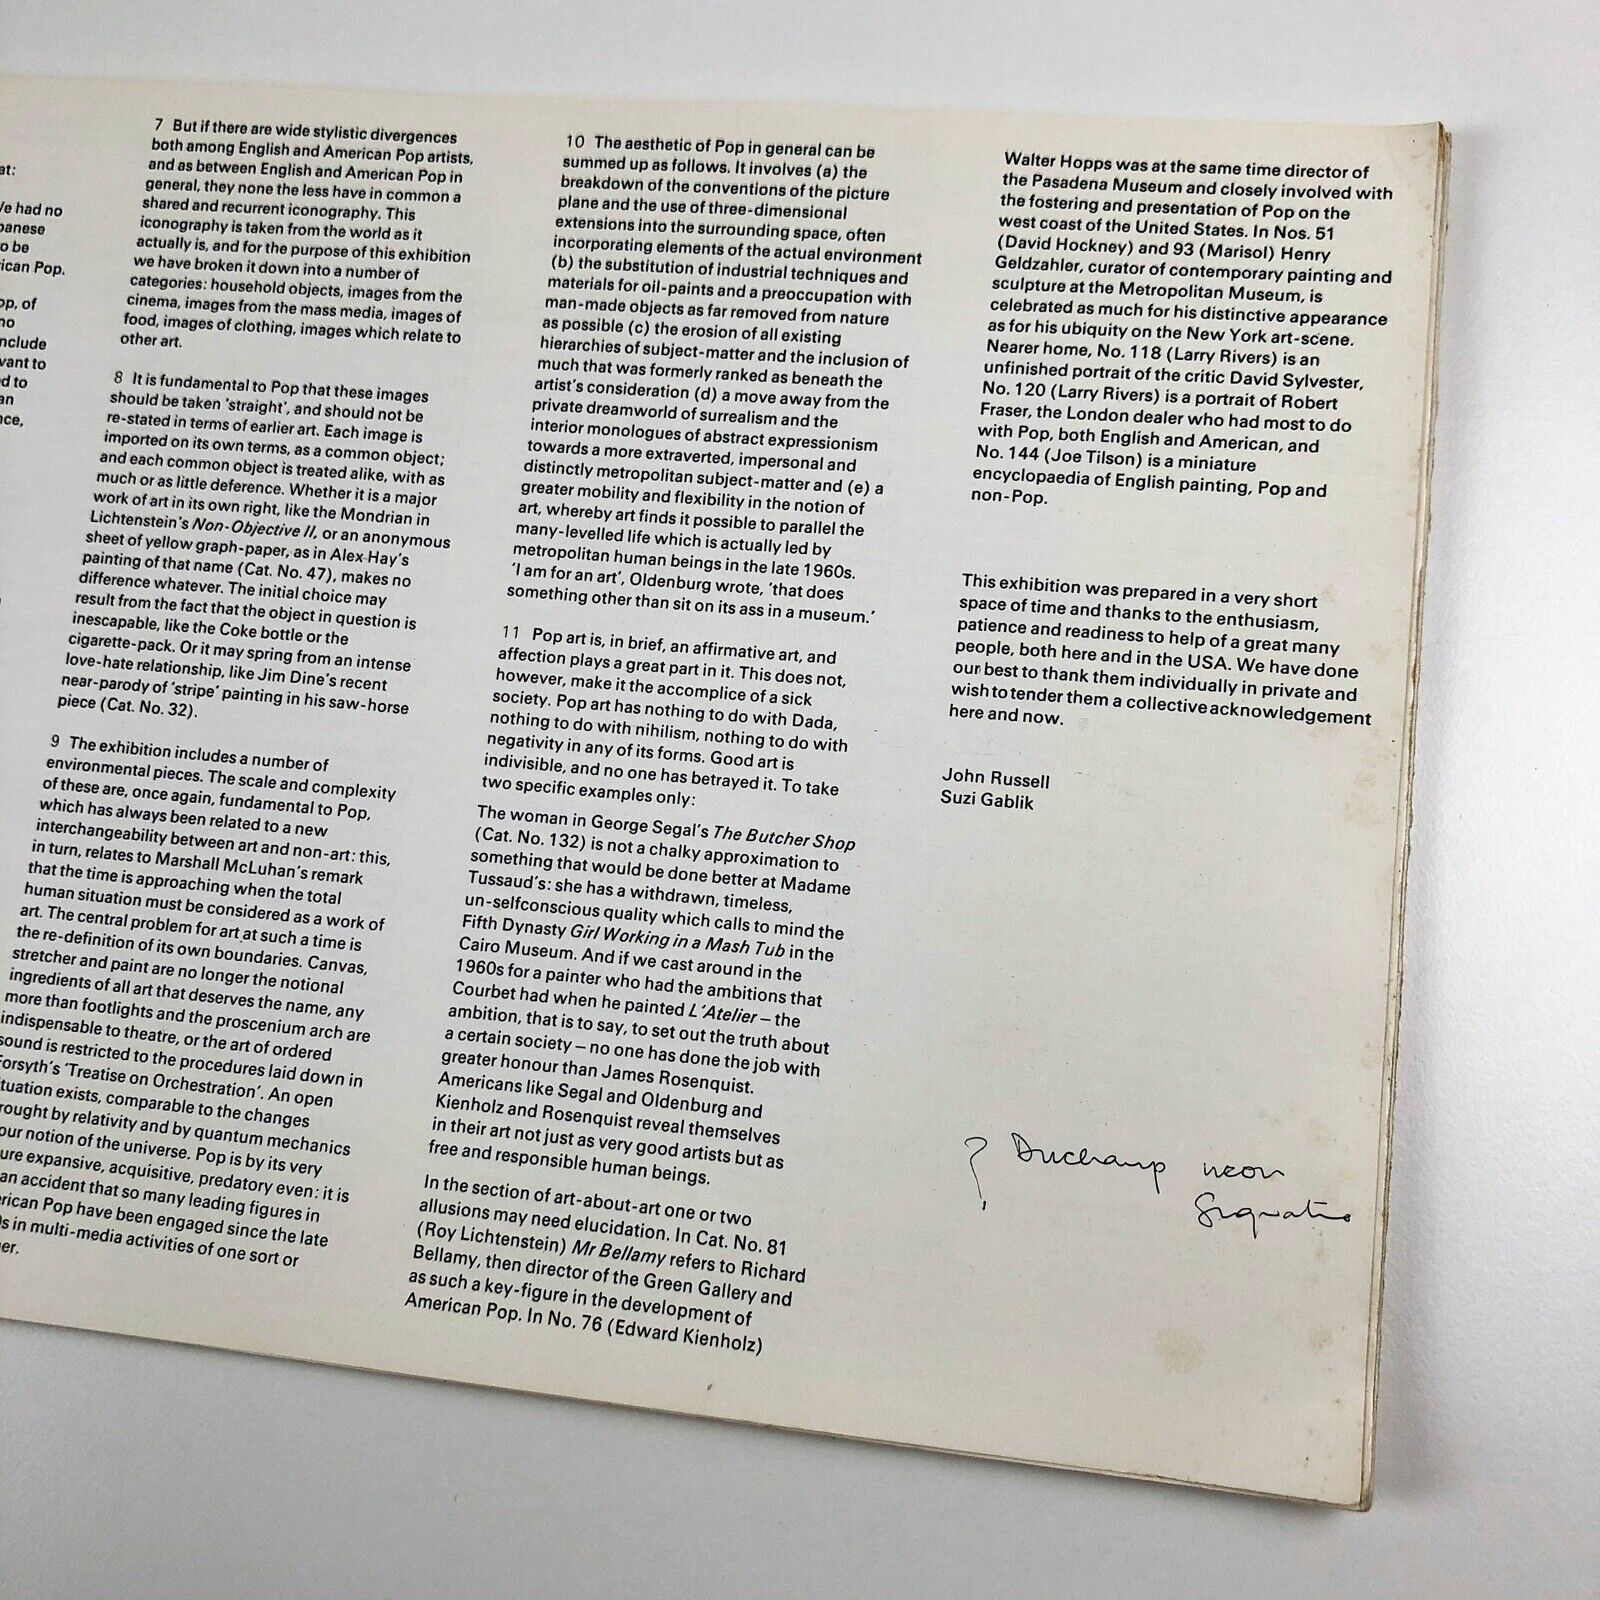 at:
We had no
panese
o be
ican Pop.
op, of
no
nclude
vant to
d to
an
nce,
7 But if there are wide stylistic divergences
both among English and American Pop artists,
and as between English and American Pop in
general, they none the less have in common a
shared and recurrent iconography. This
iconography is taken from the world as it
actually is, and for the purpose of this exhibition
we have broken it down into a number of
categories: household objects, images from the
cinema, images from the mass media, images of
food, images of clothing, images which relate to
other art.
8 It is fundamental to Pop that these images
should be taken 'straight', and should not be
re-stated in terms of earlier art. Each image is
imported on its own terms, as a common object;
and each common object is treated alike, with as
much or as little deference. Whether it is a major
work of art in its own right, like the Mondrian in
Lichtenstein's Non-Objective II, or an anonymous
sheet of yellow graph-paper, as in Alex Hay's
painting of that name (Cat. No. 47), makes no
difference whatever. The initial choice may
result from the fact that the object in question is
inescapable, like the Coke bottle or the
cigarette-pack. Or it may spring from an intense
love-hate relationship, like Jim Dine's recent
near-parody of 'stripe' painting in his saw-horse
piece (Cat. No. 32).
9 The exhibition includes a number of
environmental pieces. The scale and complexity
of these are, once again, fundamental to Pop,
which has always been related to a new
interchangeability between art and non-art: this,
in turn, relates to Marshall McLuhan's remark
that the time is approaching when the total
human situation must be considered as a work of
art. The central problem for art at such a time is
the re-definition of its own boundaries. Canvas,
stretcher and paint are no longer the notional
ingredients of all art that deserves the name, any
more than footlights and the proscenium arch are
indispensable to theatre, or the art of ordered
sound is restricted to the procedures laid down in
Forsyth's 'Treatise on Orchestration'. An open
ituation exists, comparable to the changes
rought by relativity and by quantum mechanics
our notion of the universe. Pop is by its very
ure expansive, acquisitive, predatory even: it is
an accident that so many leading figures in
erican Pop have been engaged since the late
0s in multi-media activities of one sort or
her.
10 The aesthetic of Pop in general can be
summed up as follows. It involves (a) the
breakdown of the conventions of the picture
plane and the use of three-dimensional
extensions into the surrounding space, often
incorporating elements of the actual environment
(b) the substitution of industrial techniques and
materials for oil-paints and a preoccupation with
man-made objects as far removed from nature
as possible (c) the erosion of all existing
hierarchies of subject-matter and the inclusion of
much that was formerly ranked as beneath the
artist's consideration (d) a move away from the
private dreamworld of surrealism and the
interior monologues of abstract expressionism
towards a more extraverted, impersonal and
distinctly metropolitan subject-matter and (e) a
greater mobility and flexibility in the notion of
art, whereby art finds it possible to parallel the
many-levelled life which is actually led by
metropolitan human beings in the late 1960s.
'I am for an art', Oldenburg wrote, 'that does
something other than sit on its ass in a museum.'
11 Pop art is, in brief, an affirmative art, and
affection plays a great part in it. This does not,
however, make it the accomplice of a sick
society. Pop art has nothing to do with Dada,
nothing to do with nihilism, nothing to do with
negativity in any of its forms. Good art is
indivisible, and no one has betrayed it. To take
two specific examples only:
The woman in George Segal's The Butcher Shop
(Cat. No. 132) is not a chalky approximation to
something that would be done better at Madame
Tussaud's: she has a withdrawn, timeless,
un-selfconscious quality which calls to mind the
Fifth Dynasty Girl Working in a Mash Tub in the
Cairo Museum. And if we cast around in the
1960s for a painter who had the ambitions that
Courbet had when he painted L'Atelier – the
ambition, that is to say, to set out the truth about
a certain society – no one has done the job with
greater honour than James Rosenquist.
Americans like Segal and Oldenburg and
Kienholz and Rosenquist reveal themselves
in their art not just as very good artists but as
free and responsible human beings.
In the section of art-about-art one or two
allusions may need elucidation. In Cat. No. 81
(Roy Lichtenstein) Mr Bellamy refers to Richard
Bellamy, then director of the Green Gallery and
as such a key-figure in the development of
American Pop. In No. 76 (Edward Kienholz)
Walter Hopps was at the same time director of
the Pasadena Museum and closely involved with
the fostering and presentation of Pop on the
west coast of the United States. In Nos. 51
(David Hockney) and 93 (Marisol) Henry
Geldzahler, curator of contemporary painting and
sculpture at the Metropolitan Museum, is
celebrated as much for his distinctive appearance
as for his ubiquity on the New York art-scene.
Nearer home, No. 118 (Larry Rivers) is an
unfinished portrait of the critic David Sylvester,
No. 120 (Larry Rivers) is a portrait of Robert
Fraser, the London dealer who had most to do
with Pop, both English and American, and
No. 144 (Joe Tilson) is a miniature
encyclopaedia of English painting, Pop and
non-Pop.
This exhibition was prepared in a very short
space of time and thanks to the enthusiasm,
patience and readiness to help of a great many
people, both here and in the USA. We have done
our best to thank them individually in private and
wish to tender them a collective acknowledgement
here and now.
John Russell
Suzi Gablik
? Duchamp neon
Signature